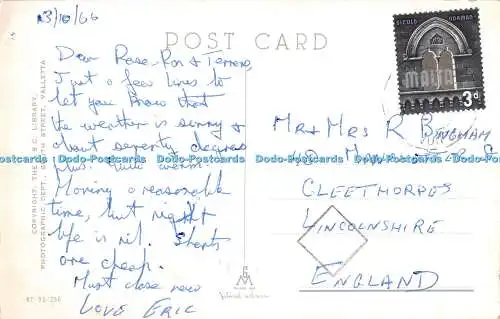 13/10/66
POST CARD
SICULO NORMAN
MALTA
3d
Dear Rose-Ron & Terrence,
Just a few lines to
let you know that
the weather is sunny &
about seventy degrees
plus. Quite warm.
Having a reasonable
time, but night
life is nil. Shorts
are cheap.
Must close now
LOVE ERIC
Mr & Mrs R BINGHAM
40 MANCHESTER
CLEETHORPES
LINCOLNSHIRE
ENGLAND
COPYRIGHT, THE LIBRARY,
PHOTOGRAPHIC DEPT, SOUTH STREET, VALLETTA
Dodo-Postcards Dodo-Postcards Dodo-Postcards Dodo-Postcards Dodo-Postcards Dodo-Postcards